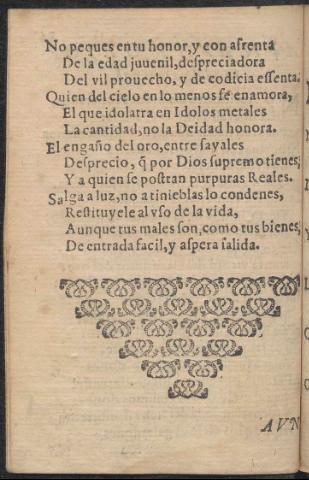 No peques en tu honor, y con afrenta
De la edad juuenil, despreciadora
Del vil prouecho, y de codicia essenta.
Quien del cielo en lo menos se enamora,
El que idolatra en Idolos metales
La cantidad, no la Deidad honora.
El engaño del oro, entre sayales
Desprecio, q̃ por Dios supremo tienes,
Y a quien se postran purpuras Reales.
Salga a luz, no a tinieblas lo condenes,
Restituyele al vso de la vida,
Aunque tus males son, como tus bienes,
De entrada facil, y aspera salida.
AVN